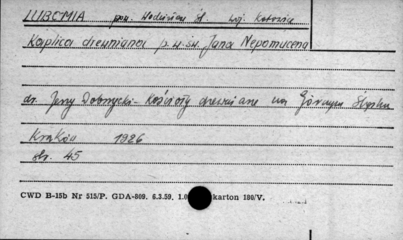 LUBOMIA pow. Wodzisław Śl. woj. Katowice
Kaplica drewniana p.w.św. Jana Nepomucena
dr. Jerzy Dobrzycki - Kościoły drewniane na Górnym Śląsku
Kraków 1926
str. 45
CWD B-15b Nr 515/P. GDA-809. 6.3.59. karton 190/V.